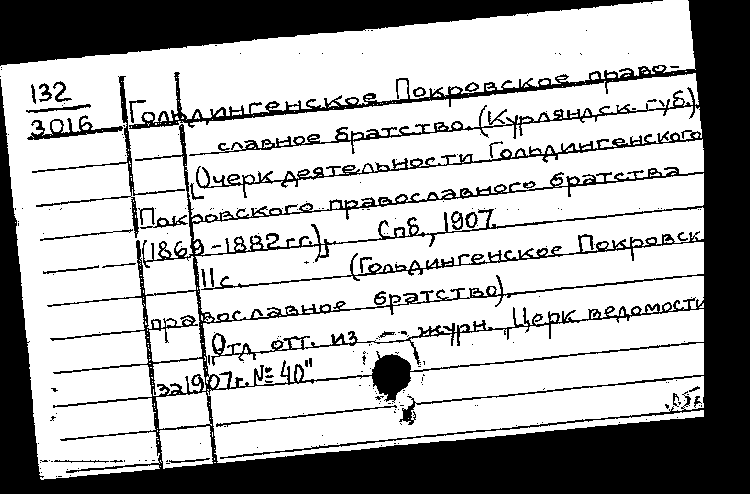 132
3016
Гольдингенское Покровское право-
славное братство. (Курляндск. губ.).
[Очерк деятельности Гольдингенского
Покровского православного братства
(1869-1882 гг.)]. Спб., 1907.
11 с. (Гольдингенское Покровск.
православное братство).
"Отд. отт. из журн. "Церк. ведомости
за 1907 г. № 40".